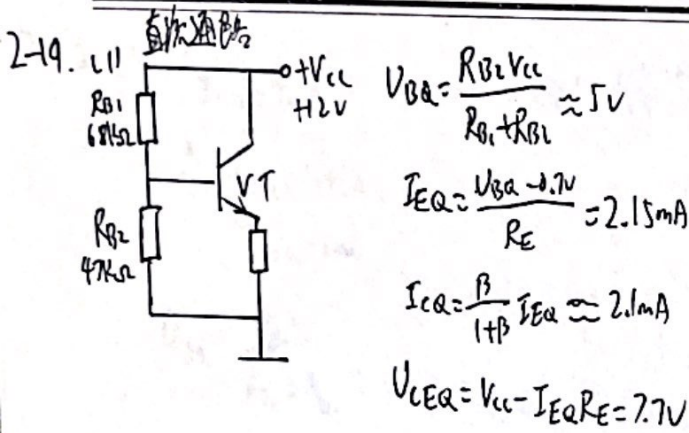 2-19. (1) 直流通路
+Vcc
+12V
RB1
68kΩ
VT
RB2
47kΩ
UBQ = RB2 Vcc / RB1+RB2 ≈ 5V
IEQ = UBQ-0.7V / RE = 2.15mA
ICQ = β / 1+β IEQ ≈ 2.1mA
UCEQ = Vcc - IEQRE = 7.7V